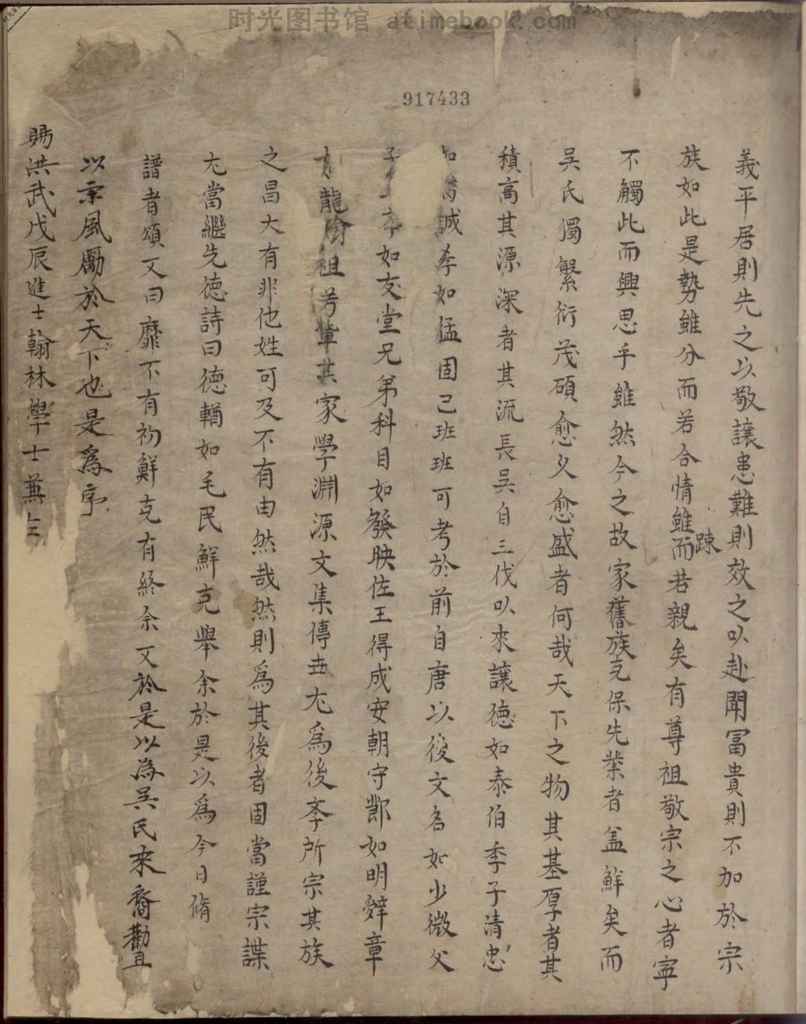 时光图书馆 atimebook.com
917433
義平居則先之以敬讓患難則效之以赴聞冨貴則不加於宗
族如此是勢雖分而若合情雖踈而若親矣有尊祖敬宗之心者寜
不觸此而興思乎雖然今之故家舊族克保先業者盖鮮矣而
吳氏獨繁衍茂碩愈久愈盛者何哉天下之物其基厚者其
積高其源深者其流長吳自三代以來讓徳如泰伯季子清忠
誠孝如猛固已班班可考於前自唐以後文名如少微父
子 如友堂兄弟科目如發昳佐王得成安朝守鄷如明辤章
龍 祖考 其家學淵源文集傳丗尤為後李所宗其族
之昌大有非他姓可及不有由然哉然則為其後者固當謹宗諜
尤當繼先徳詩曰徳輶如毛民鮮克舉余於是以為今日脩
譜者頌又曰靡不有初鮮克有終余又於是以為吳氏來裔勸且
以示風勵於天下也是為序
賜洪武戊辰進士翰林學士兼